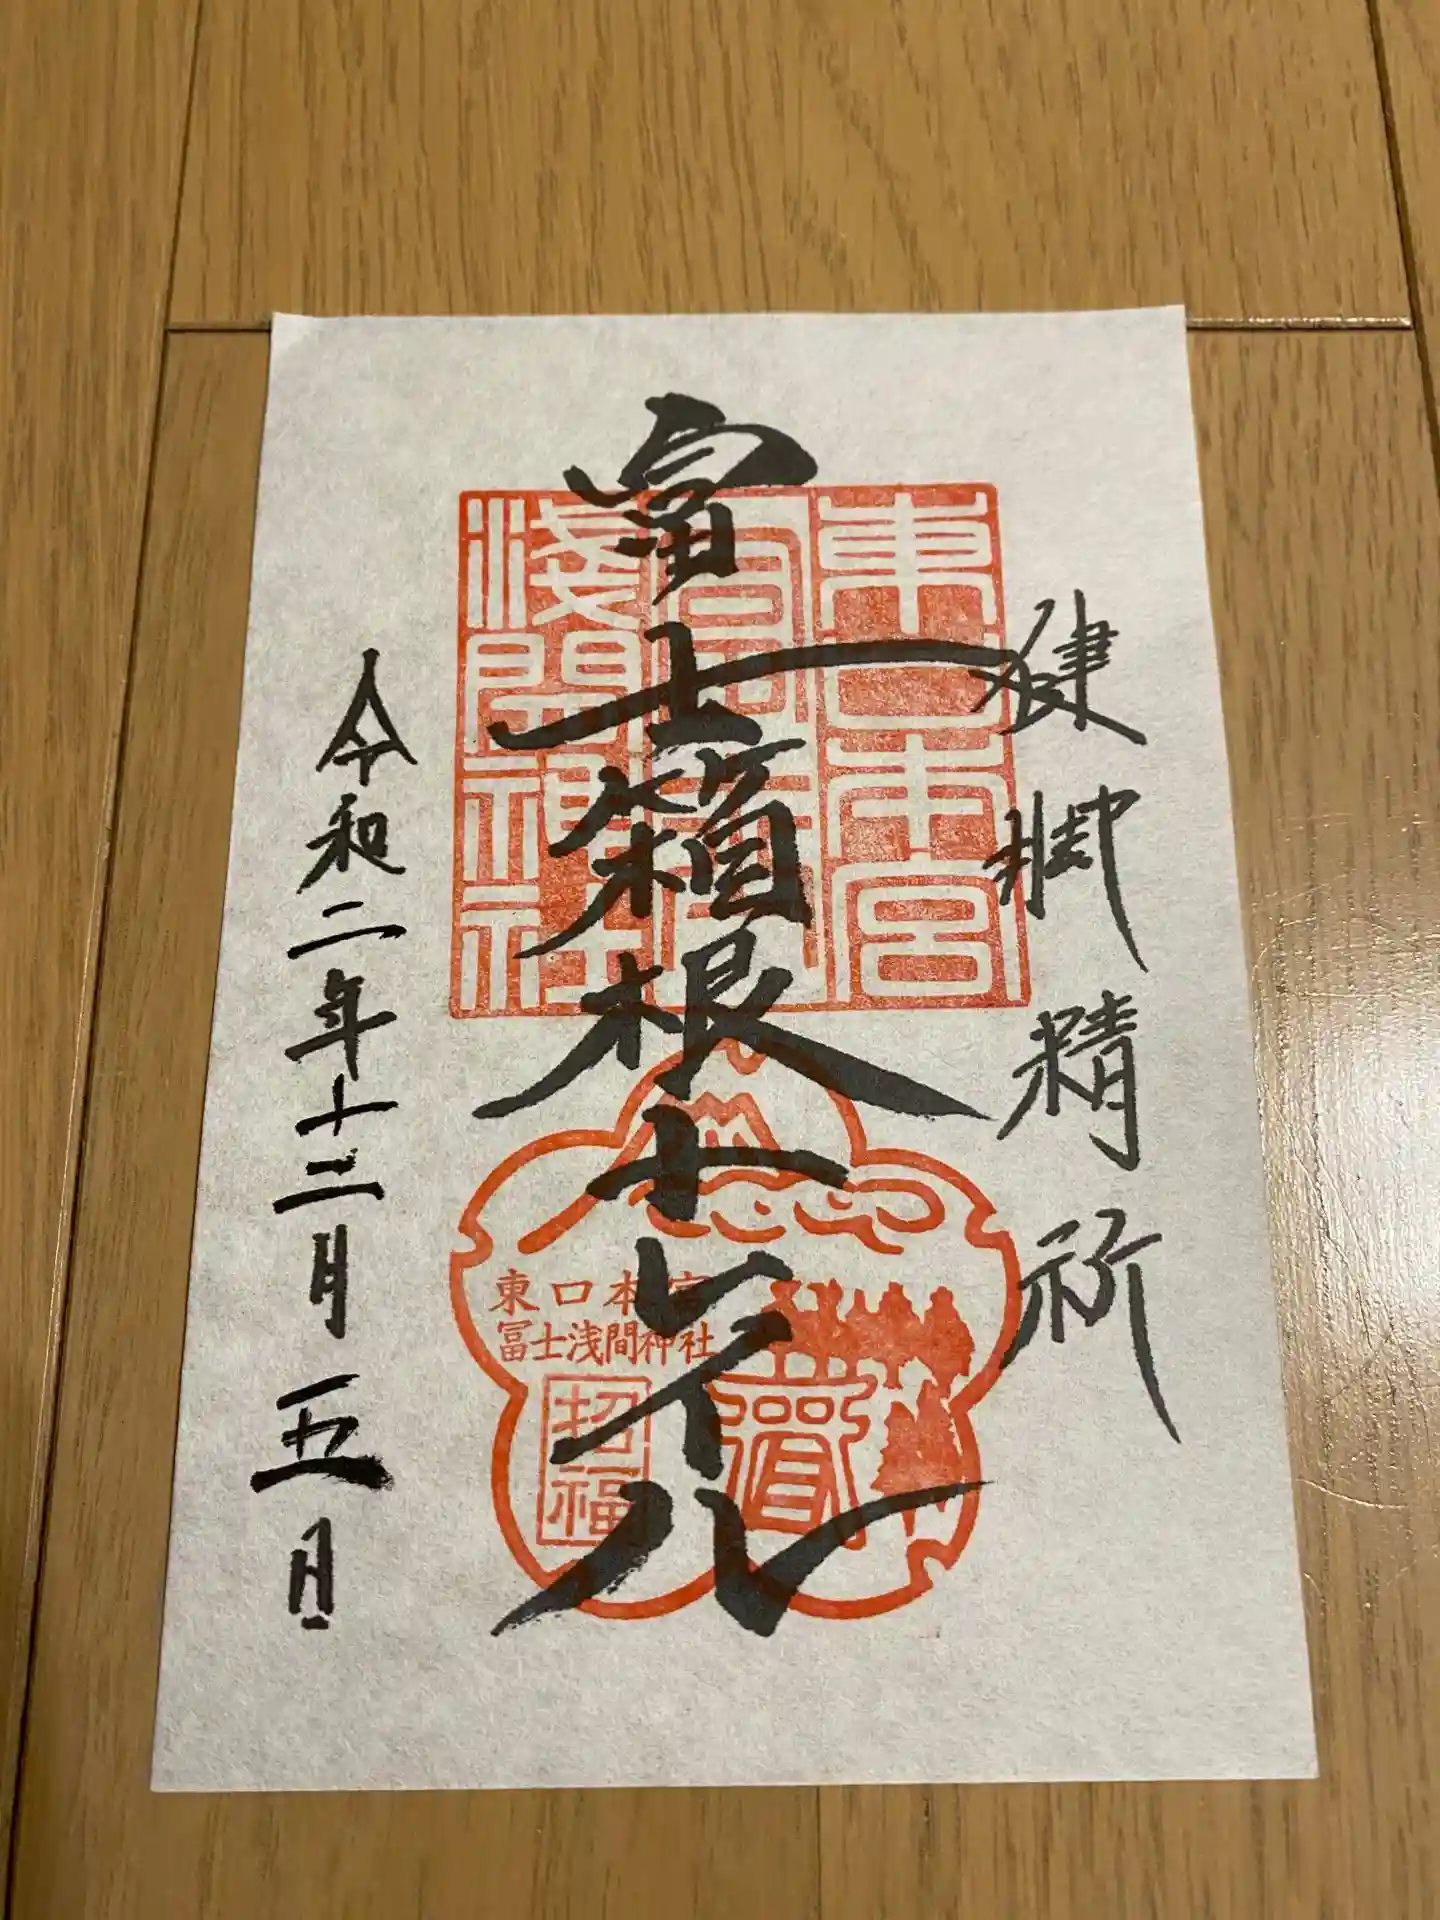 健脚精祈
富士箱根トレイル
令和二年十二月五日
東口本宮
冨士
浅間神社
東口本宮
冨士浅間神社
招福